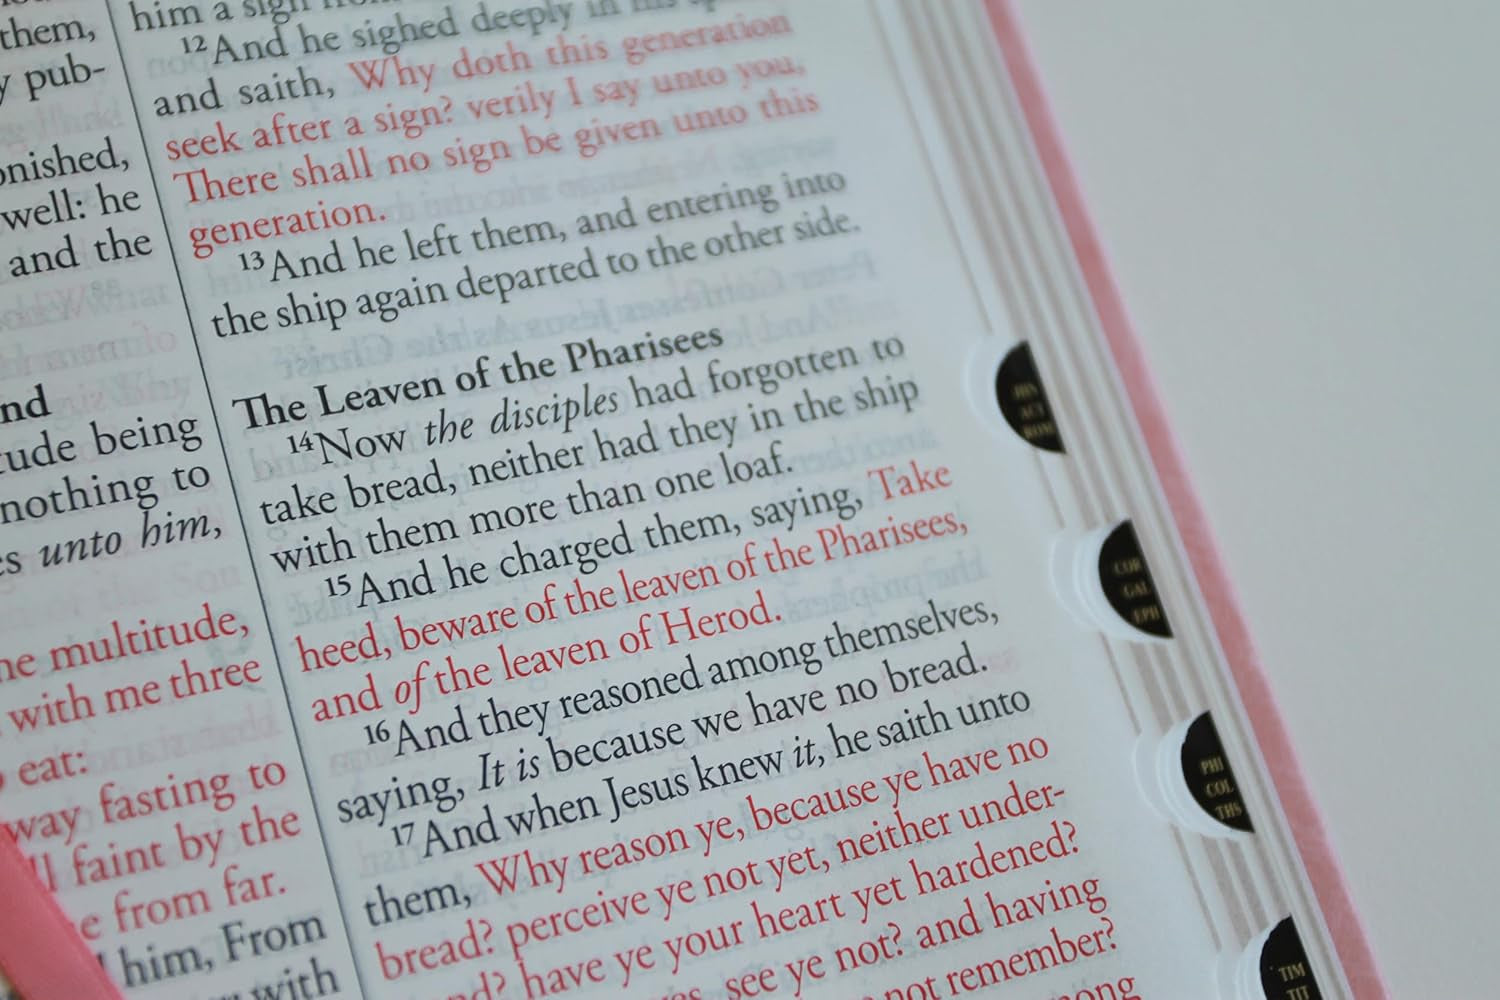 them,
pub-
onished,
well: he
and the
nd
tude being
nothing to
es unto him,
he multitude,
with me three
eat:
way fasting to
ll faint by the
e from far.
him, From
with
him a sign from
12 And he sighed deeply in his
and saith, Why doth this generation
seek after a sign? verily I say unto you,
There shall no sign be given unto this
generation.
13 And he left them, and entering into
the ship again departed to the other side.
The Leaven of the Pharisees
14 Now the disciples had forgotten to
take bread, neither had they in the ship
with them more than one loaf.
15 And he charged them, saying, Take
heed, beware of the leaven of the Pharisees,
and of the leaven of Herod.
16 And they reasoned among themselves,
saying, It is because we have no bread.
17 And when Jesus knew it, he saith unto
them, Why reason ye, because ye have no
bread? perceive ye not yet, neither under-
have ye your heart yet hardened?
see ye not? and having
not remember?
ACT
ROM
COR
GAL
EPH
PHI
COL
THS
TIM
TIT